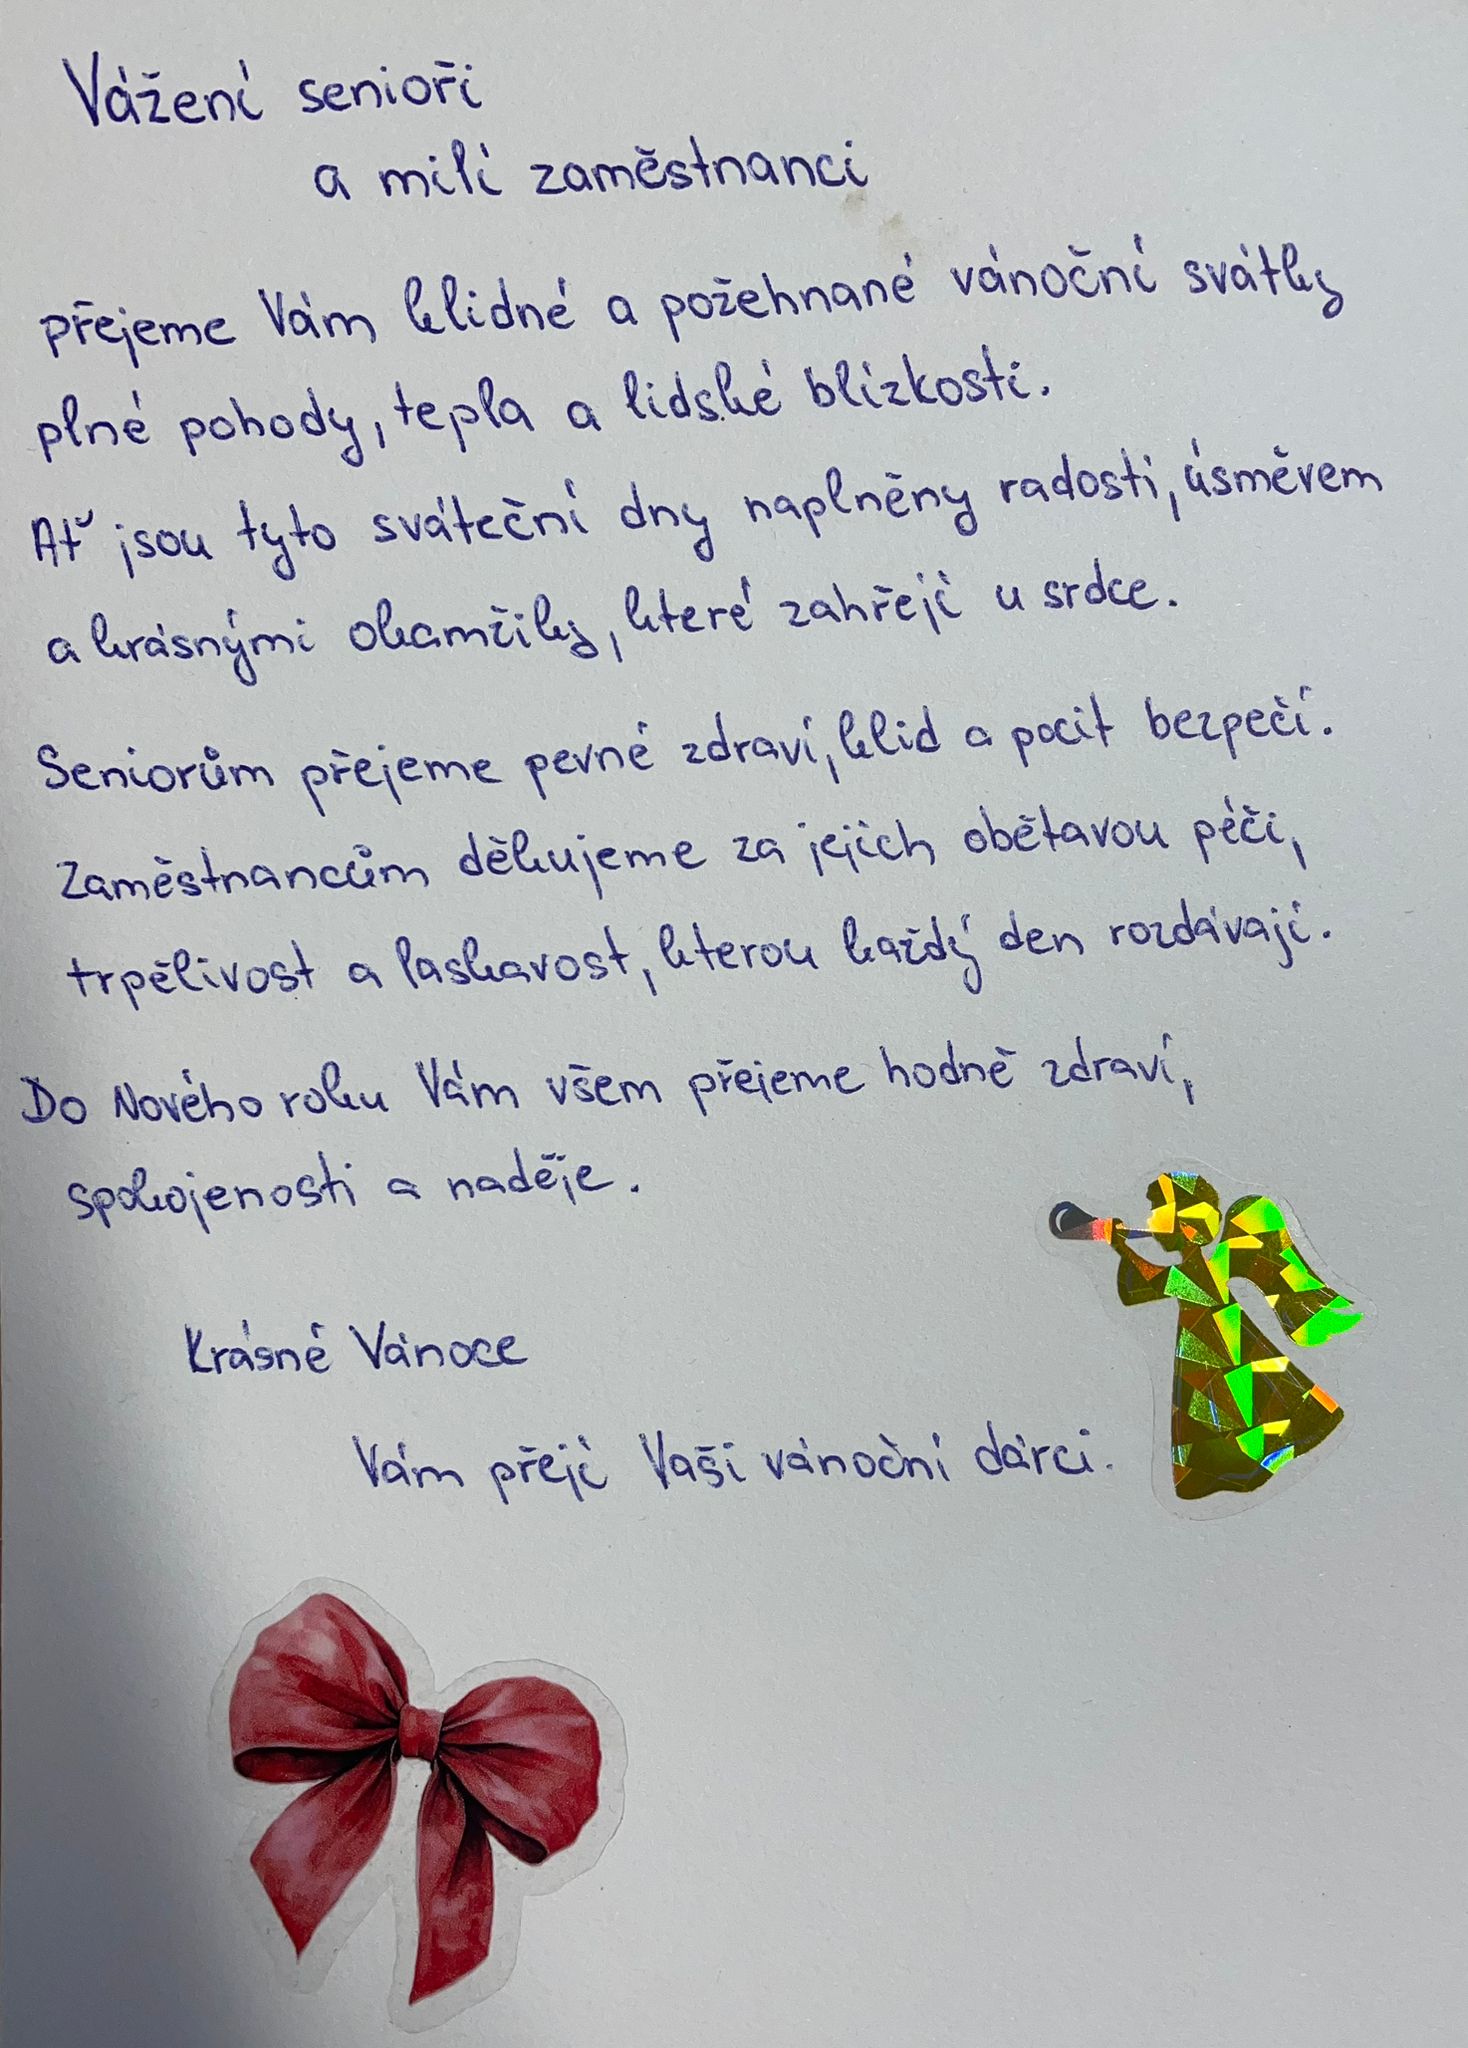 Vážení senioři
a milí zaměstnanci
přejeme Vám klidné a požehnané vánoční svátky
plné pohody, tepla a lidské blízkosti.
Ať jsou tyto sváteční dny naplněny radostí, úsměvem
a krásnými okamžiky, které zahřejí u srdce.
Seniorům přejeme pevné zdraví, klid a pocit bezpečí.
Zaměstnancům děkujeme za jejich obětavou péči,
trpělivost a laskavost, kterou každý den rozdávají.
Do Nového roku Vám všem přejeme hodně zdraví,
spokojenosti a naděje.
Krásné Vánoce
Vám přejí Vaši vánoční dárci.